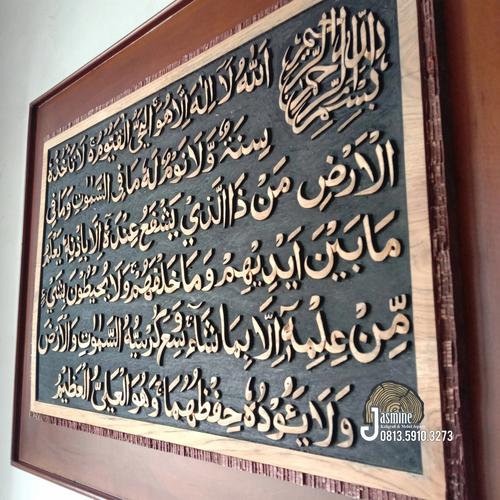 بِسْمِ اللهِ الرَّحْمٰنِ الرَّحِيْمِ
اَللهُ لَا اِلٰهَ اِلَّا هُوَ الْحَيُّ الْقَيُّوْمُ لَا تَأْخُذُهٗ
سِنَةٌ وَّلَا نَوْمٌ لَهٗ مَا فِى السَّمٰوٰتِ وَمَا فِى
الْاَرْضِ مَنْ ذَا الَّذِيْ يَشْفَعُ عِنْدَهٗ اِلَّا بِاِذْنِهٖ يَعْلَمُ
مَا بَيْنَ اَيْدِيْهِمْ وَمَا خَلْفَهُمْ وَلَا يُحِيْطُوْنَ بِشَيْءٍ
مِّنْ عِلْمِهٖ اِلَّا بِمَا شَاءَ وَسِعَ كُرْسِيُّهُ السَّمٰوٰتِ وَالْاَرْضَ
وَلَا يَئُوْدُهٗ حِفْظُهُمَا وَهُوَ الْعَلِيُّ الْعَظِيْمُ
Jasmine
Kaligrafi & Mebel Jepara
0813.5910.3273